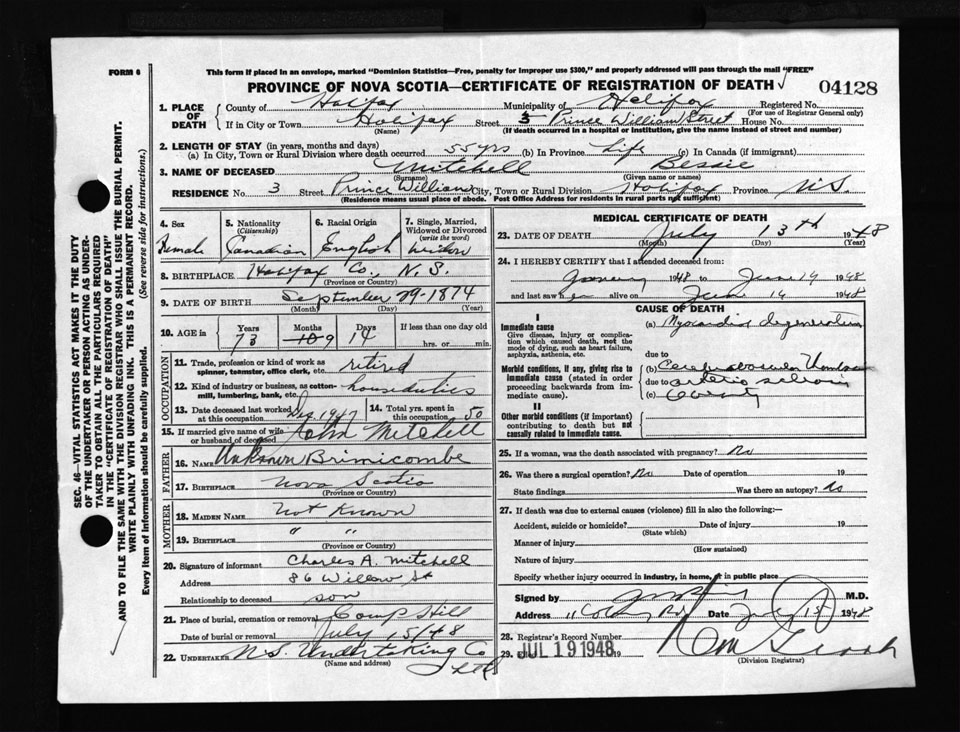 FORM 6
This form if placed in an envelope, marked "Dominion Statistics—Free, penalty for improper use $300," and properly addressed will pass through the mail "FREE"
PROVINCE OF NOVA SCOTIA—CERTIFICATE OF REGISTRATION OF DEATH
04128
1. PLACE OF DEATH
County of Halifax Municipality of Halifax Registered No.
(For use of Registrar General only)
If in City or Town Halifax Street 3 Prince William Street House No.
(Name) (If death occurred in a hospital or institution, give the name instead of street and number)
2. LENGTH OF STAY (in years, months and days)
(a) In City, Town or Rural Division where death occurred 55 yrs (b) In Province Life (c) In Canada (if immigrant)
3. NAME OF DECEASED Mitchell Bessie
(Surname) (Given name or names)
RESIDENCE No. 3 Street Prince William City, Town or Rural Division Halifax Province N.S.
(Residence means usual place of abode. Post Office Address for residents in rural parts not sufficient)
4. Sex
Female
5. Nationality
(Citizenship)
Canadian
6. Racial Origin
English
7. Single, Married, Widowed or Divorced
(write the word)
Widow
8. BIRTHPLACE Halifax Co., N.S.
(Province or Country)
9. DATE OF BIRTH September 29-1874
(Month) (Day) (Year)
10. AGE in
Years Months Days If less than one day old
73 10 9 14 hrs. or min.
OCCUPATION
11. Trade, profession or kind of work as spinner, teamster, office clerk, etc. retired
12. Kind of industry or business, as cotton-mill, lumbering, bank, etc. house duties
13. Date deceased last worked at this occupation Dec 1947
14. Total yrs. spent in this occupation 50
15. If married give name of wife or husband of deceased John Mitchell
FATHER
16. NAME Unknown Brimicombe
17. BIRTHPLACE Nova Scotia
(Province or Country)
MOTHER
18. MAIDEN NAME Not Known
19. BIRTHPLACE " "
(Province or Country)
20. Signature of informant Charles A. Mitchell
Address 86 Willow St
Relationship to deceased son
21. Place of burial, cremation or removal Camp Hill
Date of burial or removal July 15/48
22. UNDERTAKER N.S. Undertaking Co
(Name and address)
MEDICAL CERTIFICATE OF DEATH
23. DATE OF DEATH July 13th 1948
(Month) (Day) (Year)
24. I HEREBY CERTIFY that I attended deceased from:
1948 to June 19 1948
and last saw her alive on June 14 1948
CAUSE OF DEATH
I
Immediate cause
Give disease, injury or complication which caused death, not the mode of dying, such as heart failure, asphyxia, asthenia, etc.
(a) Myocardial degeneration
due to
Morbid conditions, if any, giving rise to immediate cause (stated in order proceeding backwards from immediate cause).
(b)
due to
(c) Obesity
II
Other morbid conditions (if important) contributing to death but not causally related to immediate cause.
25. If a woman, was the death associated with pregnancy? No
26. Was there a surgical operation? No Date of operation 19
State findings Was there an autopsy? No
27. If death was due to external causes (violence) fill in also the following:—
Accident, suicide or homicide? Date of injury 19
(State which)
Manner of injury
(How sustained)
Nature of injury
Specify whether injury occurred in industry, in home, or in public place
Signed by M.D.
Address Date July 15 1948
28. Registrar's Record Number
29. JUL 19 1948 19
(Division Registrar)
SEC. 46—VITAL STATISTICS ACT MAKES IT THE DUTY OF THE UNDERTAKER OR PERSON ACTING AS UNDERTAKER TO OBTAIN ALL THE PARTICULARS REQUIRED IN THE "CERTIFICATE OF REGISTRATION OF DEATH"
AND TO FILE THE SAME WITH THE DIVISION REGISTRAR WHO SHALL ISSUE THE BURIAL PERMIT.
WRITE PLAINLY WITH UNFADING INK. THIS IS A PERMANENT RECORD.
Every item of Information should be carefully supplied. (See reverse side for instructions.)